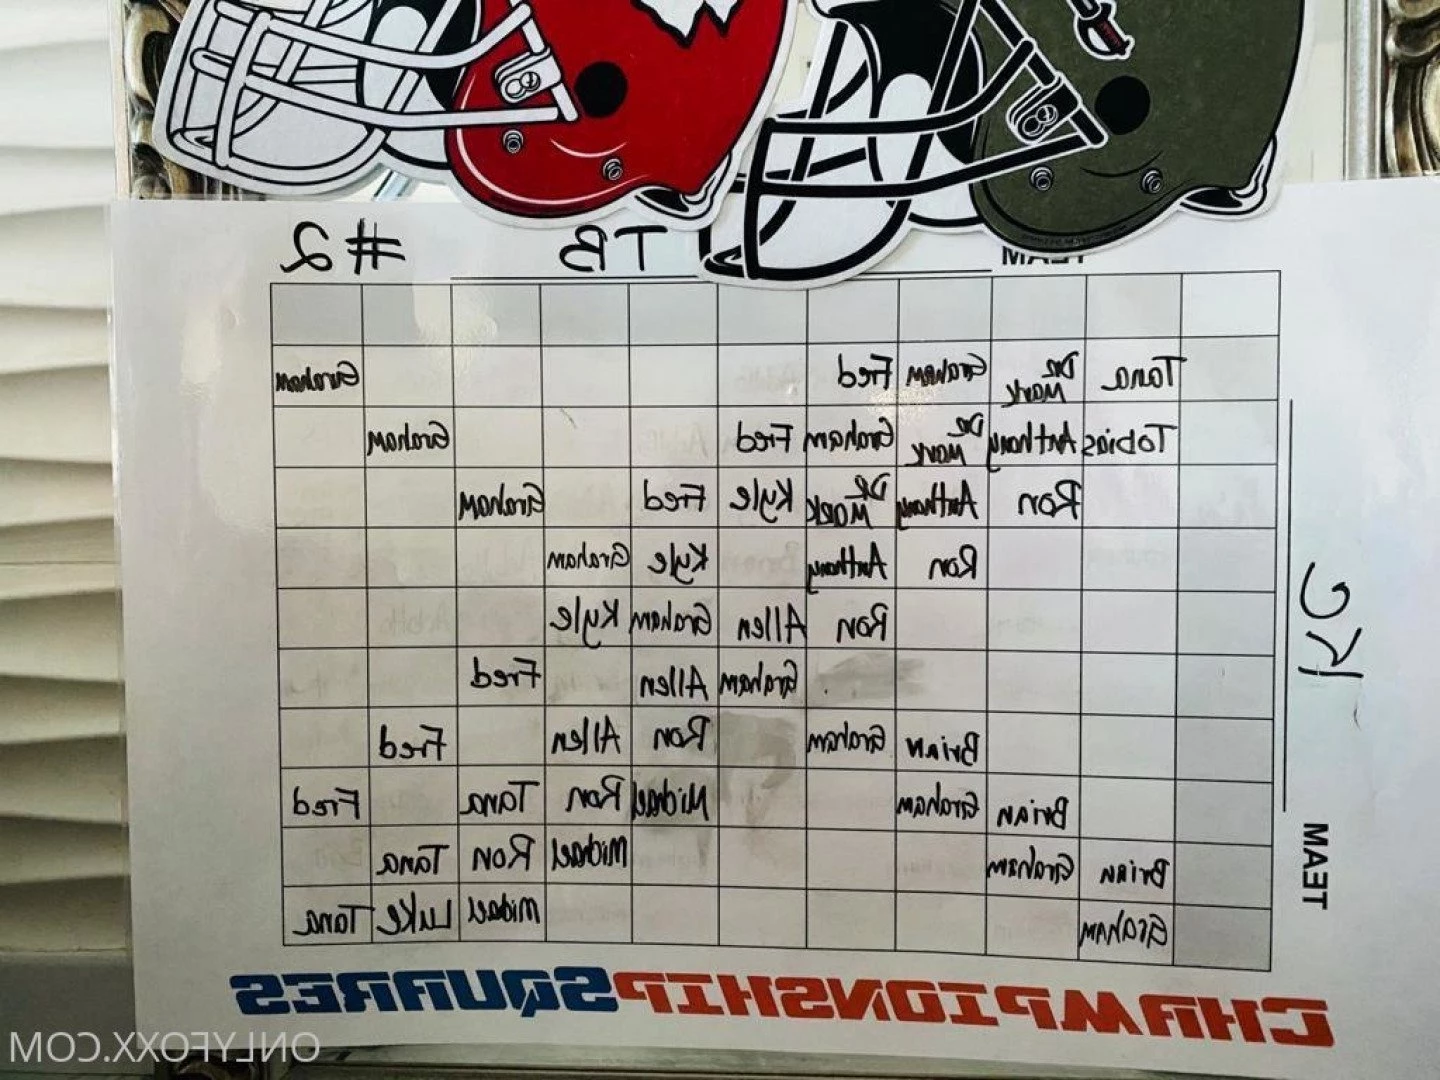 TEAM TB #2
Tana DR Mark Graham Fred Graham
Tobias Anthony DR Mark Graham Fred Graham
Ron Anthony DR MARK Kyle Fred Graham
Ron Anthony Kyle Graham
Ron Allen Graham Kyle
Graham Allen Fred
Brian Graham Ron Allen Fred
Brian Graham Michael Ron Tana Fred
Brian Graham Michael Ron Tana
Graham Michael Luke Tana
TEAM KC
CHAMPIONSHIP SQUARES
ONLYFOXX.COM